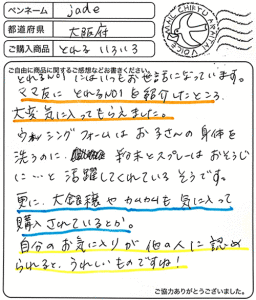 ペンネーム jade
都道府県 大阪府
ご購入商品 とれる いろいろ
ご自由に商品に関するご感想などお書きください。
とれるNO1にはいつもお世話になっています。
ママ友に とれるNO1を紹介したところ、
大変気に入ってもらえました。
ウォシングフォームはお子さんの身体を
洗うのに、粉末とスプレーはおそうじ
に…と 活躍してくれているそうです。
更に、大掃除やカムカムも気に入って
購入されているとか。
自分のお気に入りが他の人に認め
られると、うれしいものですね!
ご協力ありがとうございました。